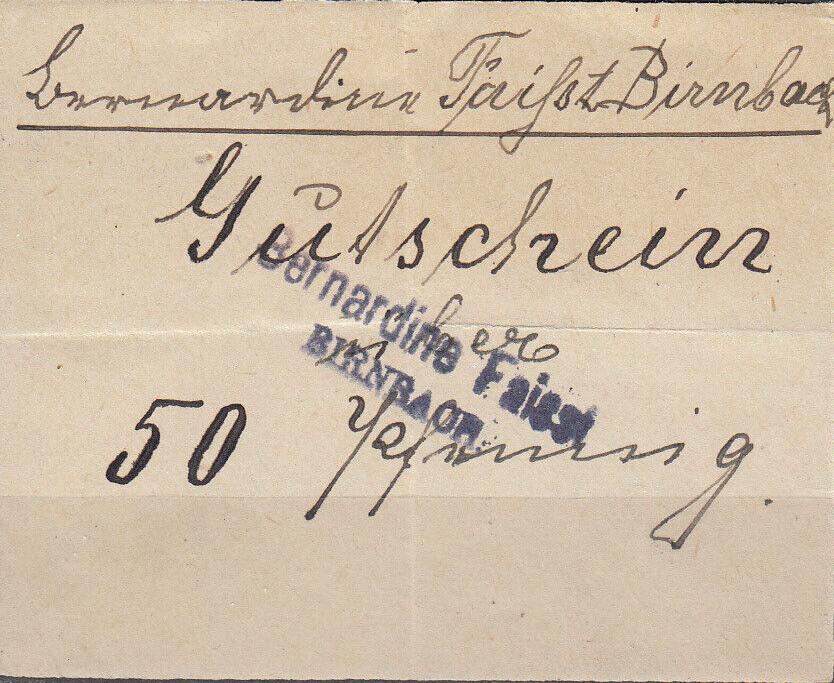 Bernardine Faißt Birnbach
Gutschein
über
50 Pfennig.
Bernardine Faisst
BIRNBACH